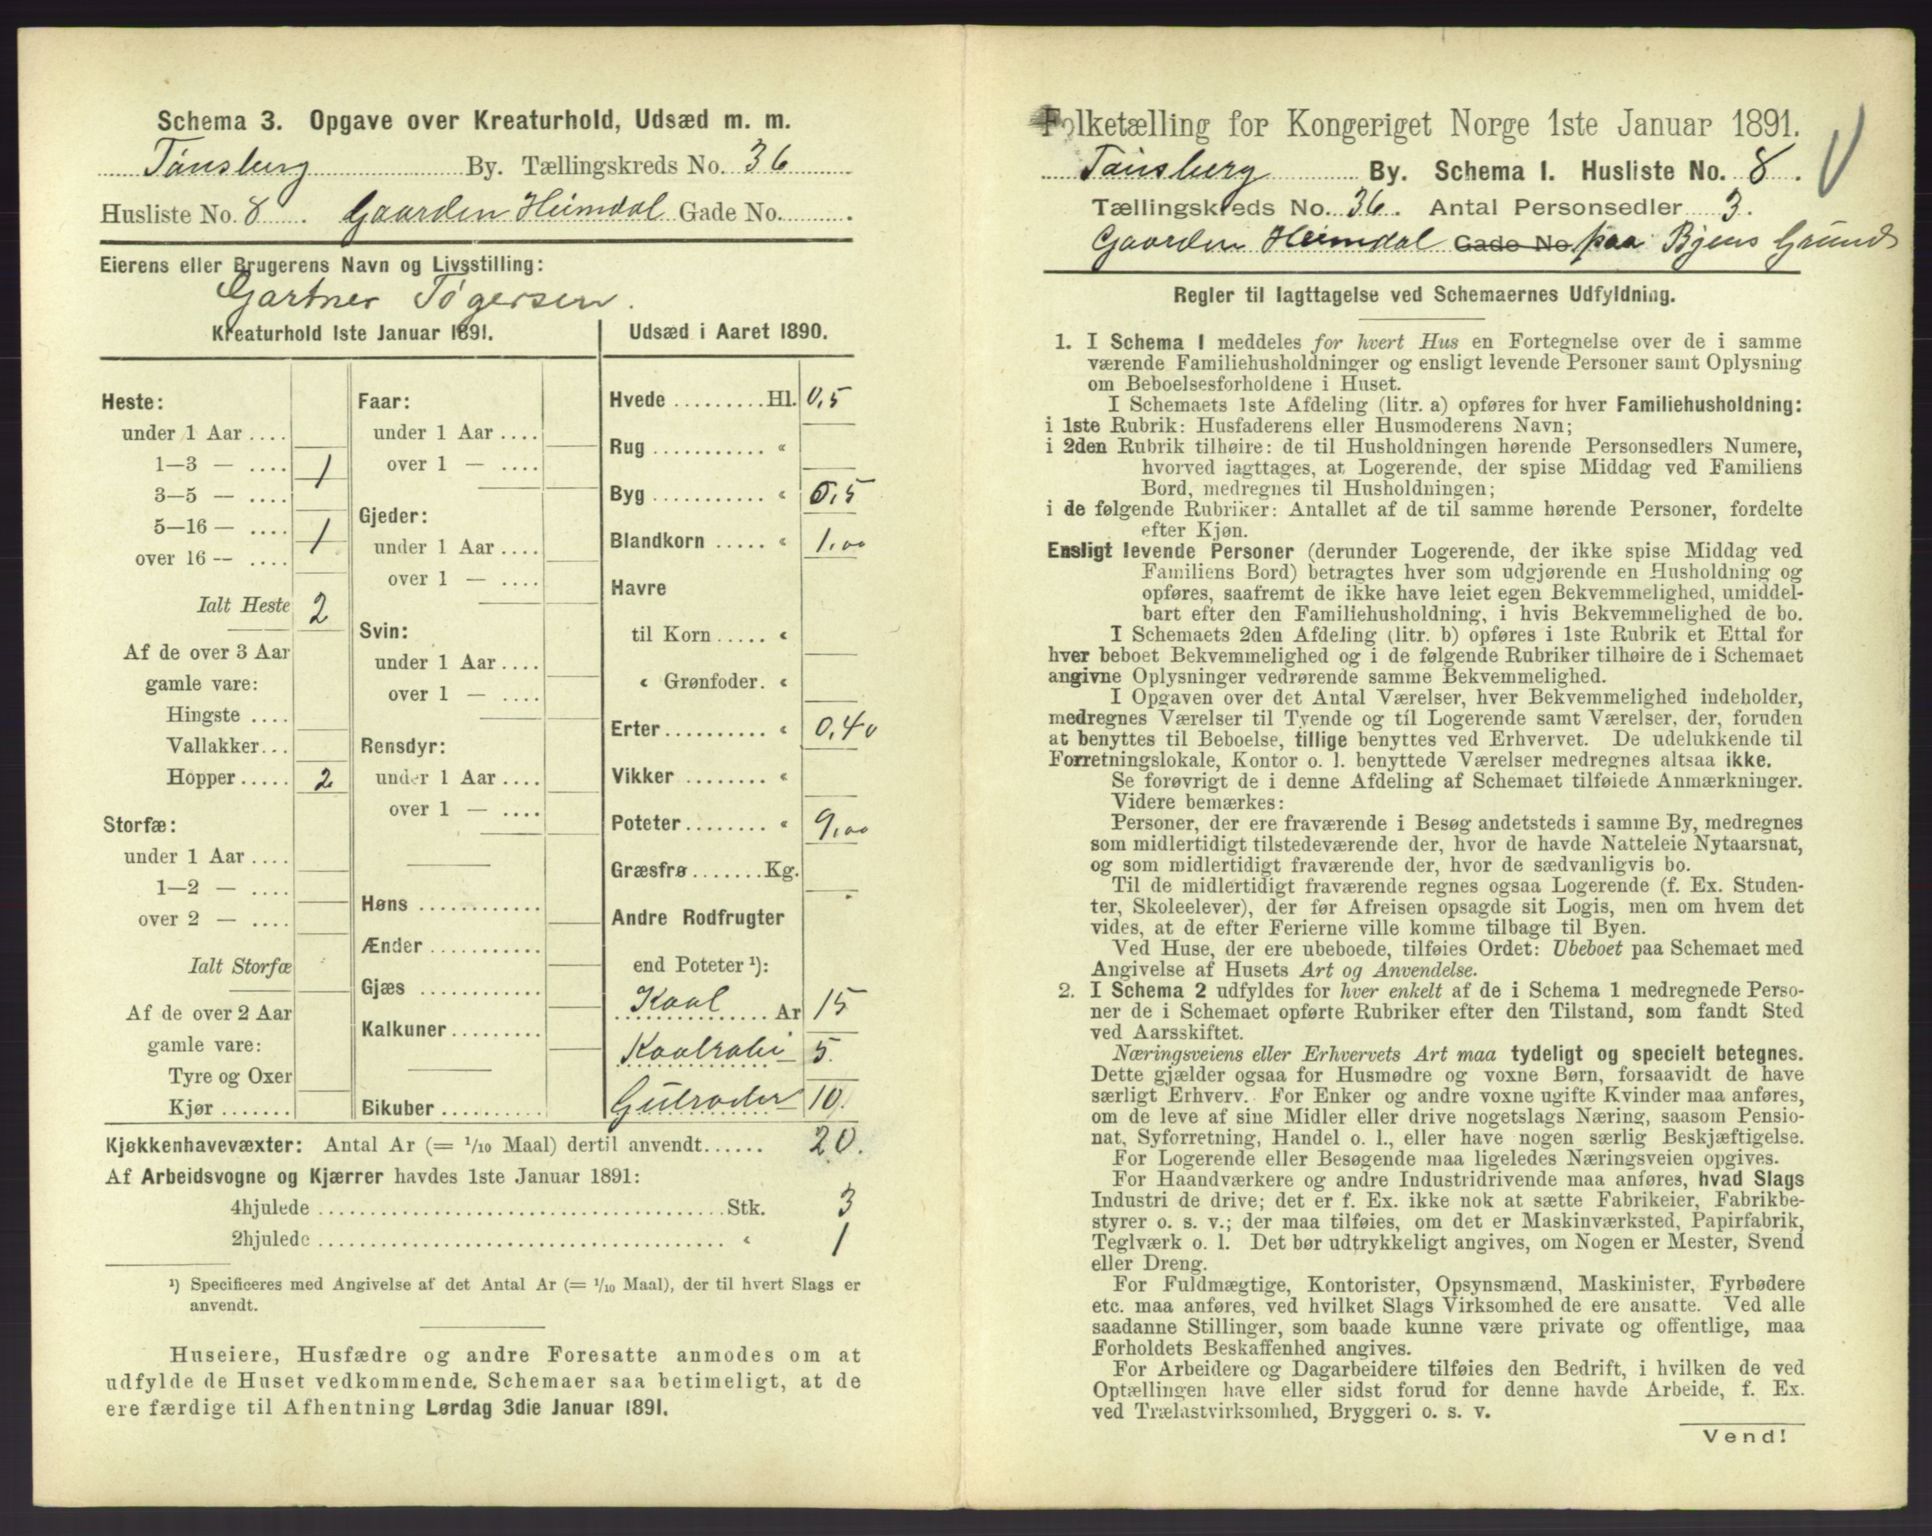 Schema 3. Opgave over Kreaturhold, Udsæd m. m.
Tønsberg By. Tællingskreds No. 36
Husliste No. 8. Gaarden Heimdal Gade No.
Eierens eller Brugerens Navn og Livsstilling:
Gartner Tøgersen.
Kreaturhold 1ste Januar 1891.
Heste:
under 1 Aar ....
1—3 — .... 1
3—5 — ....
5—16 — .... 1
over 16 — ....
Ialt Heste 2
Af de over 3 Aar
gamle vare:
Hingste ....
Vallakker...
Hopper ..... 2
Storfæ:
under 1 Aar ....
1—2 — ....
over 2 — ....
Ialt Storfæ
Af de over 2 Aar
gamle vare:
Tyre og Oxer
Kjør .......
Faar:
under 1 Aar ....
over 1 — ....
Gjeder:
under 1 Aar ....
over 1 — ....
Svin:
under 1 Aar ....
over 1 — ....
Rensdyr:
under 1 Aar ....
over 1 — ....
Høns ............
Ænder ...........
Gjæs ............
Kalkuner.........
Bikuber ..........
Udsæd i Aaret 1890.
Hvede .........Hl. 0,5
Rug ........... “
Byg ........... “ 0,5
Blandkorn ..... “ 1,00
Havre
til Korn ..... “
“ Grønfoder. “
Erter.......... “ 0,40
Vikker ........ “
Poteter........ “ 9,00
Græsfrø.......Kg.
Andre Rodfrugter
end Poteter ¹):
Kaal Ar 15
Kaalrabi — 5.
Gulrøder — 10.
Kjøkkenhavevæxter: Antal Ar (= 1/10 Maal) dertil anvendt...... 20.
Af Arbeidsvogne og Kjærrer havdes 1ste Januar 1891:
4hjulede ........................................Stk. 3
2hjulede ........................................ “ 1
¹) Specificeres med Angivelse af det Antal Ar (= 1/10 Maal), der til hvert Slags er
anvendt.
Huseiere, Husfædre og andre Foresatte anmodes om at
udfylde de Huset vedkommende Schemaer saa betimeligt, at de
ere færdige til Afhentning Lørdag 3die Januar 1891.
Folketælling for Kongeriget Norge 1ste Januar 1891.
Tønsberg By. Schema I. Husliste No. 8.
Tællingskreds No. 36. Antal Personsedler 3.
Gaarden Heimdal Gade No paa Byens Grund
Regler til Iagttagelse ved Schemaernes Udfyldning.
1. I Schema 1 meddeles for hvert Hus en Fortegnelse over de i samme
værende Familiehusholdninger og ensligt levende Personer samt Oplysning
om Beboelsesforholdene i Huset.
I Schemaets 1ste Afdeling (litr. a) opføres for hver Familiehusholdning:
i 1ste Rubrik: Husfaderens eller Husmoderens Navn;
i 2den Rubrik tilhøire: de til Husholdningen hørende Personsedlers Numere,
hvorved iagttages, at Logerende, der spise Middag ved Familiens
Bord, medregnes til Husholdningen;
i de følgende Rubriker: Antallet af de til samme hørende Personer, fordelte
efter Kjøn.
Ensligt levende Personer (derunder Logerende, der ikke spise Middag ved
Familiens Bord) betragtes hver som udgjørende en Husholdning og
opføres, saafremt de ikke have leiet egen Bekvemmelighed, umiddel-
bart efter den Familiehusholdning, i hvis Bekvemmelighed de bo.
I Schemaets 2den Afdeling (litr. b) opføres i 1ste Rubrik et Ettal for
hver beboet Bekvemmelighed og i de følgende Rubriker tilhøire de i Schemaet
angivne Oplysninger vedrørende samme Bekvemmelighed.
I Opgaven over det Antal Værelser, hver Bekvemmelighed indeholder,
medregnes Værelser til Tyende og til Logerende samt Værelser, der, foruden
at benyttes til Beboelse, tillige benyttes ved Erhvervet. De udelukkende til
Forretningslokale, Kontor o. l. benyttede Værelser medregnes altsaa ikke.
Se forøvrigt de i denne Afdeling af Schemaet tilføiede Anmærkninger.
Videre bemærkes:
Personer, der ere fraværende i Besøg andetsteds i samme By, medregnes
som midlertidigt tilstedeværende der, hvor de havde Natteleie Nytaarsnat,
og som midlertidigt fraværende der, hvor de sædvanligvis bo.
Til de midlertidigt fraværende regnes ogsaa Logerende (f. Ex. Studen-
ter, Skoleelever), der før Afreisen opsagde sit Logis, men om hvem det
vides, at de efter Ferierne ville komme tilbage til Byen.
Ved Huse, der ere ubeboede, tilføies Ordet: Ubeboet paa Schemaet med
Angivelse af Husets Art og Anvendelse.
2. I Schema 2 udfyldes for hver enkelt af de i Schema 1 medregnede Perso-
ner de i Schemaet opførte Rubriker efter den Tilstand, som fandt Sted
ved Aarsskiftet.
Næringsveiens eller Erhvervets Art maa tydeligt og specielt betegnes.
Dette gjælder ogsaa for Husmødre og voxne Børn, forsaavidt de have
særligt Erhverv. For Enker og andre voxne ugifte Kvinder maa anføres,
om de leve af sine Midler eller drive nogetslags Næring, saasom Pensio-
nat, Syforretning, Handel o. l., eller have nogen særlig Beskjæftigelse.
For Logerende eller Besøgende maa ligeledes Næringsveien opgives.
For Haandværkere og andre Industridrivende maa anføres, hvad Slags
Industri de drive; det er f. Ex. ikke nok at sætte Fabrikeier, Fabrikbe-
styrer o. s. v.; der maa tilføies, om det er Maskinværksted, Papirfabrik,
Teglværk o. l. Det bør udtrykkeligt angives, om Nogen er Mester, Svend
eller Dreng.
For Fuldmægtige, Kontorister, Opsynsmænd, Maskinister, Fyrbødere
etc. maa anføres, ved hvilket Slags Virksomhed de ere ansatte. Ved alle
saadanne Stillinger, som baade kunne være private og offentlige, maa
Forholdets Beskaffenhed angives.
For Arbeidere og Dagarbeidere tilføies den Bedrift, i hvilken de ved
Optællingen have eller sidst forud for denne havde Arbeide, f. Ex.
ved Trælastvirksomhed, Bryggeri o. s. v.
Vend!